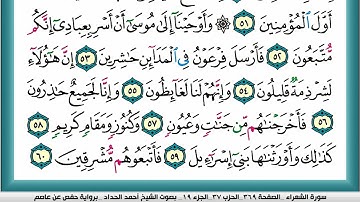 أَوَّلَ ٱلْمُؤْمِنِينَ ٥١ ۞ وَأَوْحَيْنَآ إِلَىٰ مُوسَىٰٓ أَنْ أَسْرِ بِعِبَادِىٓ إِنَّكُم
مُّتَّبَعُونَ ٥٢ فَأَرْسَلَ فِرْعَوْنُ فِى ٱلْمَدَآئِنِ حَٰشِرِينَ ٥٣ إِنَّ هَٰٓؤُلَآءِ
لَشِرْذِمَةٌ قَلِيلُونَ ٥٤ وَإِنَّهُمْ لَنَا لَغَآئِظُونَ ٥٥ وَإِنَّا لَجَمِيعٌ حَٰذِرُونَ
٥٦ فَأَخْرَجْنَٰهُم مِّن جَنَّٰتٍ وَعُيُونٍ ٥٧ وَكُنُوزٍ وَمَقَامٍ كَرِيمٍ ٥٨
كَذَٰلِكَ وَأَوْرَثْنَٰهَا بَنِىٓ إِسْرَٰٓءِيلَ ٥٩ فَأَتْبَعُوهُم مُّشْرِقِينَ ٦٠
سورة الشعراء _الصفحة ٣٦٩_ الحزب ٣٧_ الجزء ١٩_ بصوت الشيخ أحمد الحداد_ برواية حفص عن عاصم